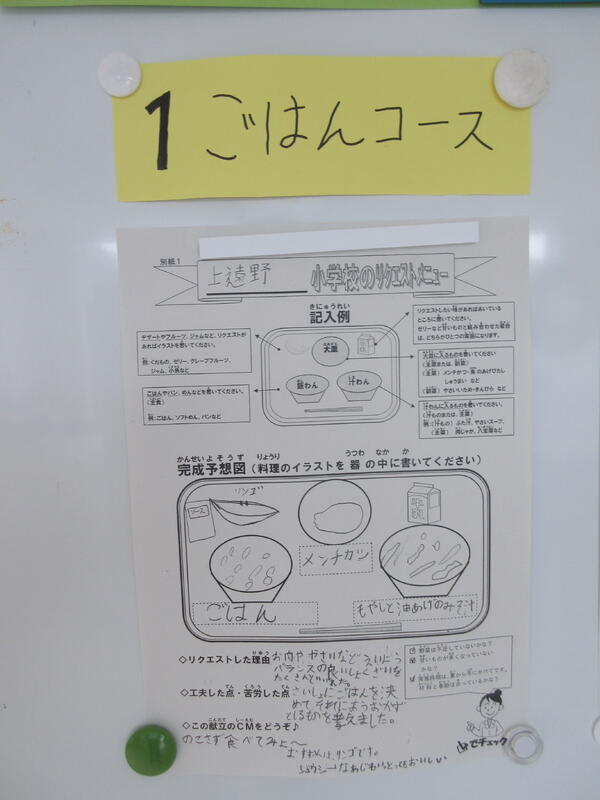 1 ごはんコース
別紙1
上遠野 小学校のリクエストメニュー
きにゅうれい
記入例
デザートやフルーツ、ジャムなど、リクエストが
あればイラストを書いてください。
例:くだもの、ゼリー、グレープフルーツ、
ジャム、小魚など
ごはんやパン、めんなどを書いてください。
(主食)
例:ごはん、ソフトめん、パンなど
大皿
飯わん
汁わん
リクエストしたい味があればあいている
ところに書いてください。
ゼリーなど甘いものと組み合わせた場合
は、どちらかひとつの実施になります。
大皿に入るものを書いてください
(主菜または、副菜)
(主菜) メンチカツ・魚のあげびたし
しゅうまい など
(副菜) やさいいため・きんぴら など
汁わんに入るものを書いてください
(汁ものまたは、主菜)
例:(汁もの) ぶた汁、やさいスープ、
(主菜) 肉じゃが、八宝菜など
かんせいよそうず りょうり うつわ なか か
完成予想図(料理のイラストを 器 の中に書いてください)
リンゴ
ソース
牛乳
メンチカツ
ごはん
もやしと油あげのみそ汁
◇リクエストした理由 お肉や、やさいなど、えいよう
バランスの良いしょくざいを
たくさんいれた。
◇工夫した点・苦労した点 さいしょにごはんを決
めて、それにあうおかず
となるものを考えました。
◇この献立のCMをどうぞ♪
のこさず食べてみよ〜
おすすめは、リンゴです。
野菜は不足していないかな?
甘いものが多くなっていない
かな?
でチェック